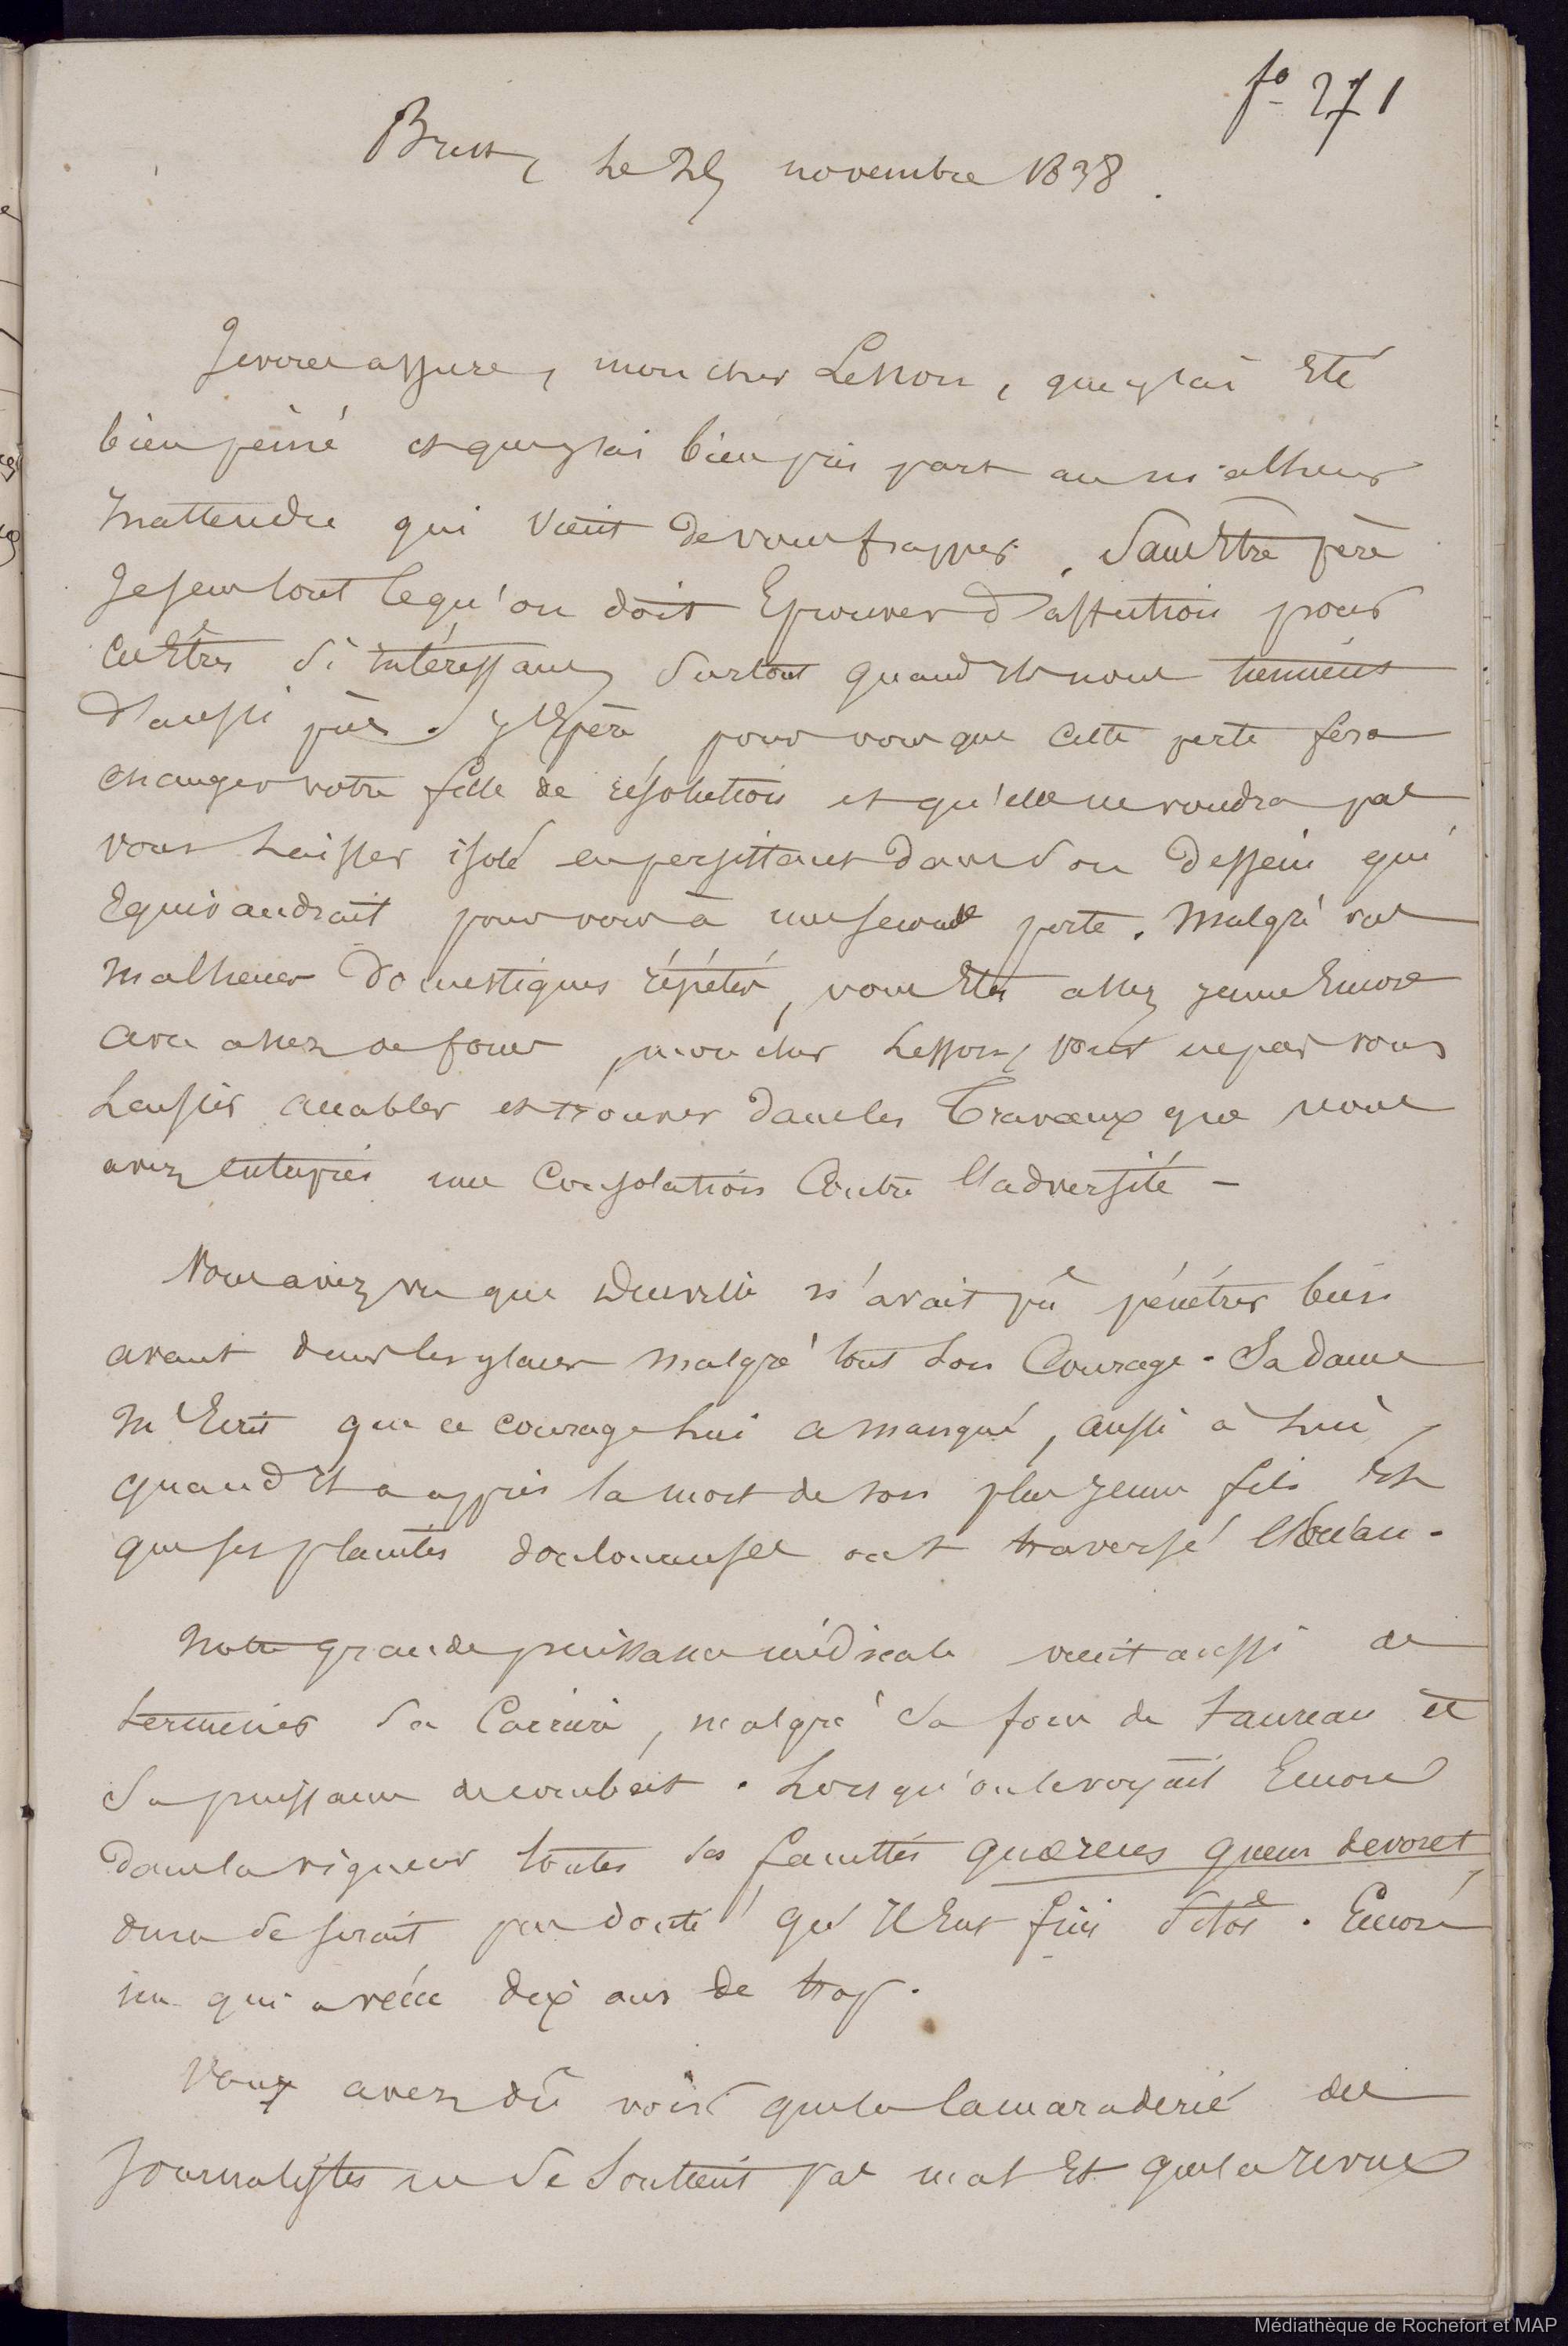 fo 271
Brest, le 25 novembre 1838.
Je vous assure, mon cher Lesson, que j'ai été
bien peiné et que j'ai bien pris part au malheur
inattendu qui vient de vous frapper. Sans être père
je sens tout ce qu'on doit éprouver d'affection pour
ces êtres si intéressans surtout quand ils nous tiennent
d'aussi près. J'espère pour vous que cette perte fera
changer votre fille de résolution et qu'elle ne voudra pas
vous laisser isolé en persistant dans son dessein qui
équivaudrait pour vous à une seconde perte. Malgré vos
malheurs domestiques répétés, vous êtes assez jeune encore
avec assez de force, mon cher Lesson, pour ne pas vous
laisser accabler et trouver dans les travaux que vous
avez entrepris une consolation contre l'adversité -
Vous avez vu que Durville n'avait pû pénétrer bien
avant dans les glaces malgré tout son courage. Sa dame
m'écrit que ce courage lui a manqué, aussi à lui,
quand il a appris la mort de son plus jeune fils et
que ses plaintes douloureuses ont traversé l'océan.
Notre grande puissance médicale vient aussi de
terminer sa carrière, malgré sa force de taureau et
sa puissance de combat. Lorsqu'on le voyait encore
dans la vigueur toutes ses facultés quærens quem devoret
on ne se serait pas douté qu'il eut fini sitôt. Encore
un qui a vécu dix ans de trop.
Vous avez dû voir que la camaraderie des
journalistes ne se soutient pas mal et que la revue
Médiathèque de Rochefort et MAP